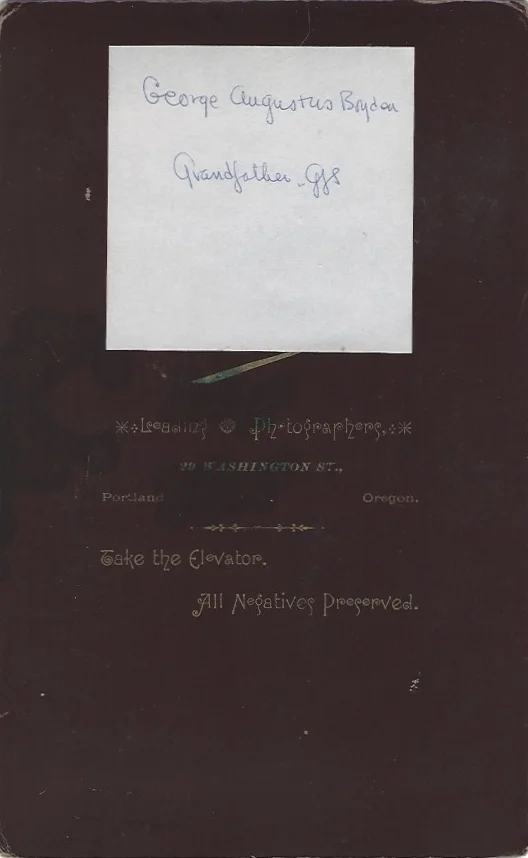 George Augustus Boyden
Grandfather - GJS
Leading Photographers,
29 WASHINGTON ST.,
Portland Oregon.
Take the Elevator.
All Negatives Preserved.